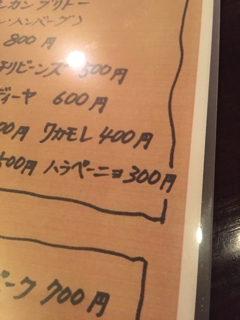 カンブリトー
ン・ハンバーグ)
800円
チリビーンズ 500円
ディーヤ 600円
00円 ワカモレ 400円
500円 ハラペーニョ 300円
ーク 700円